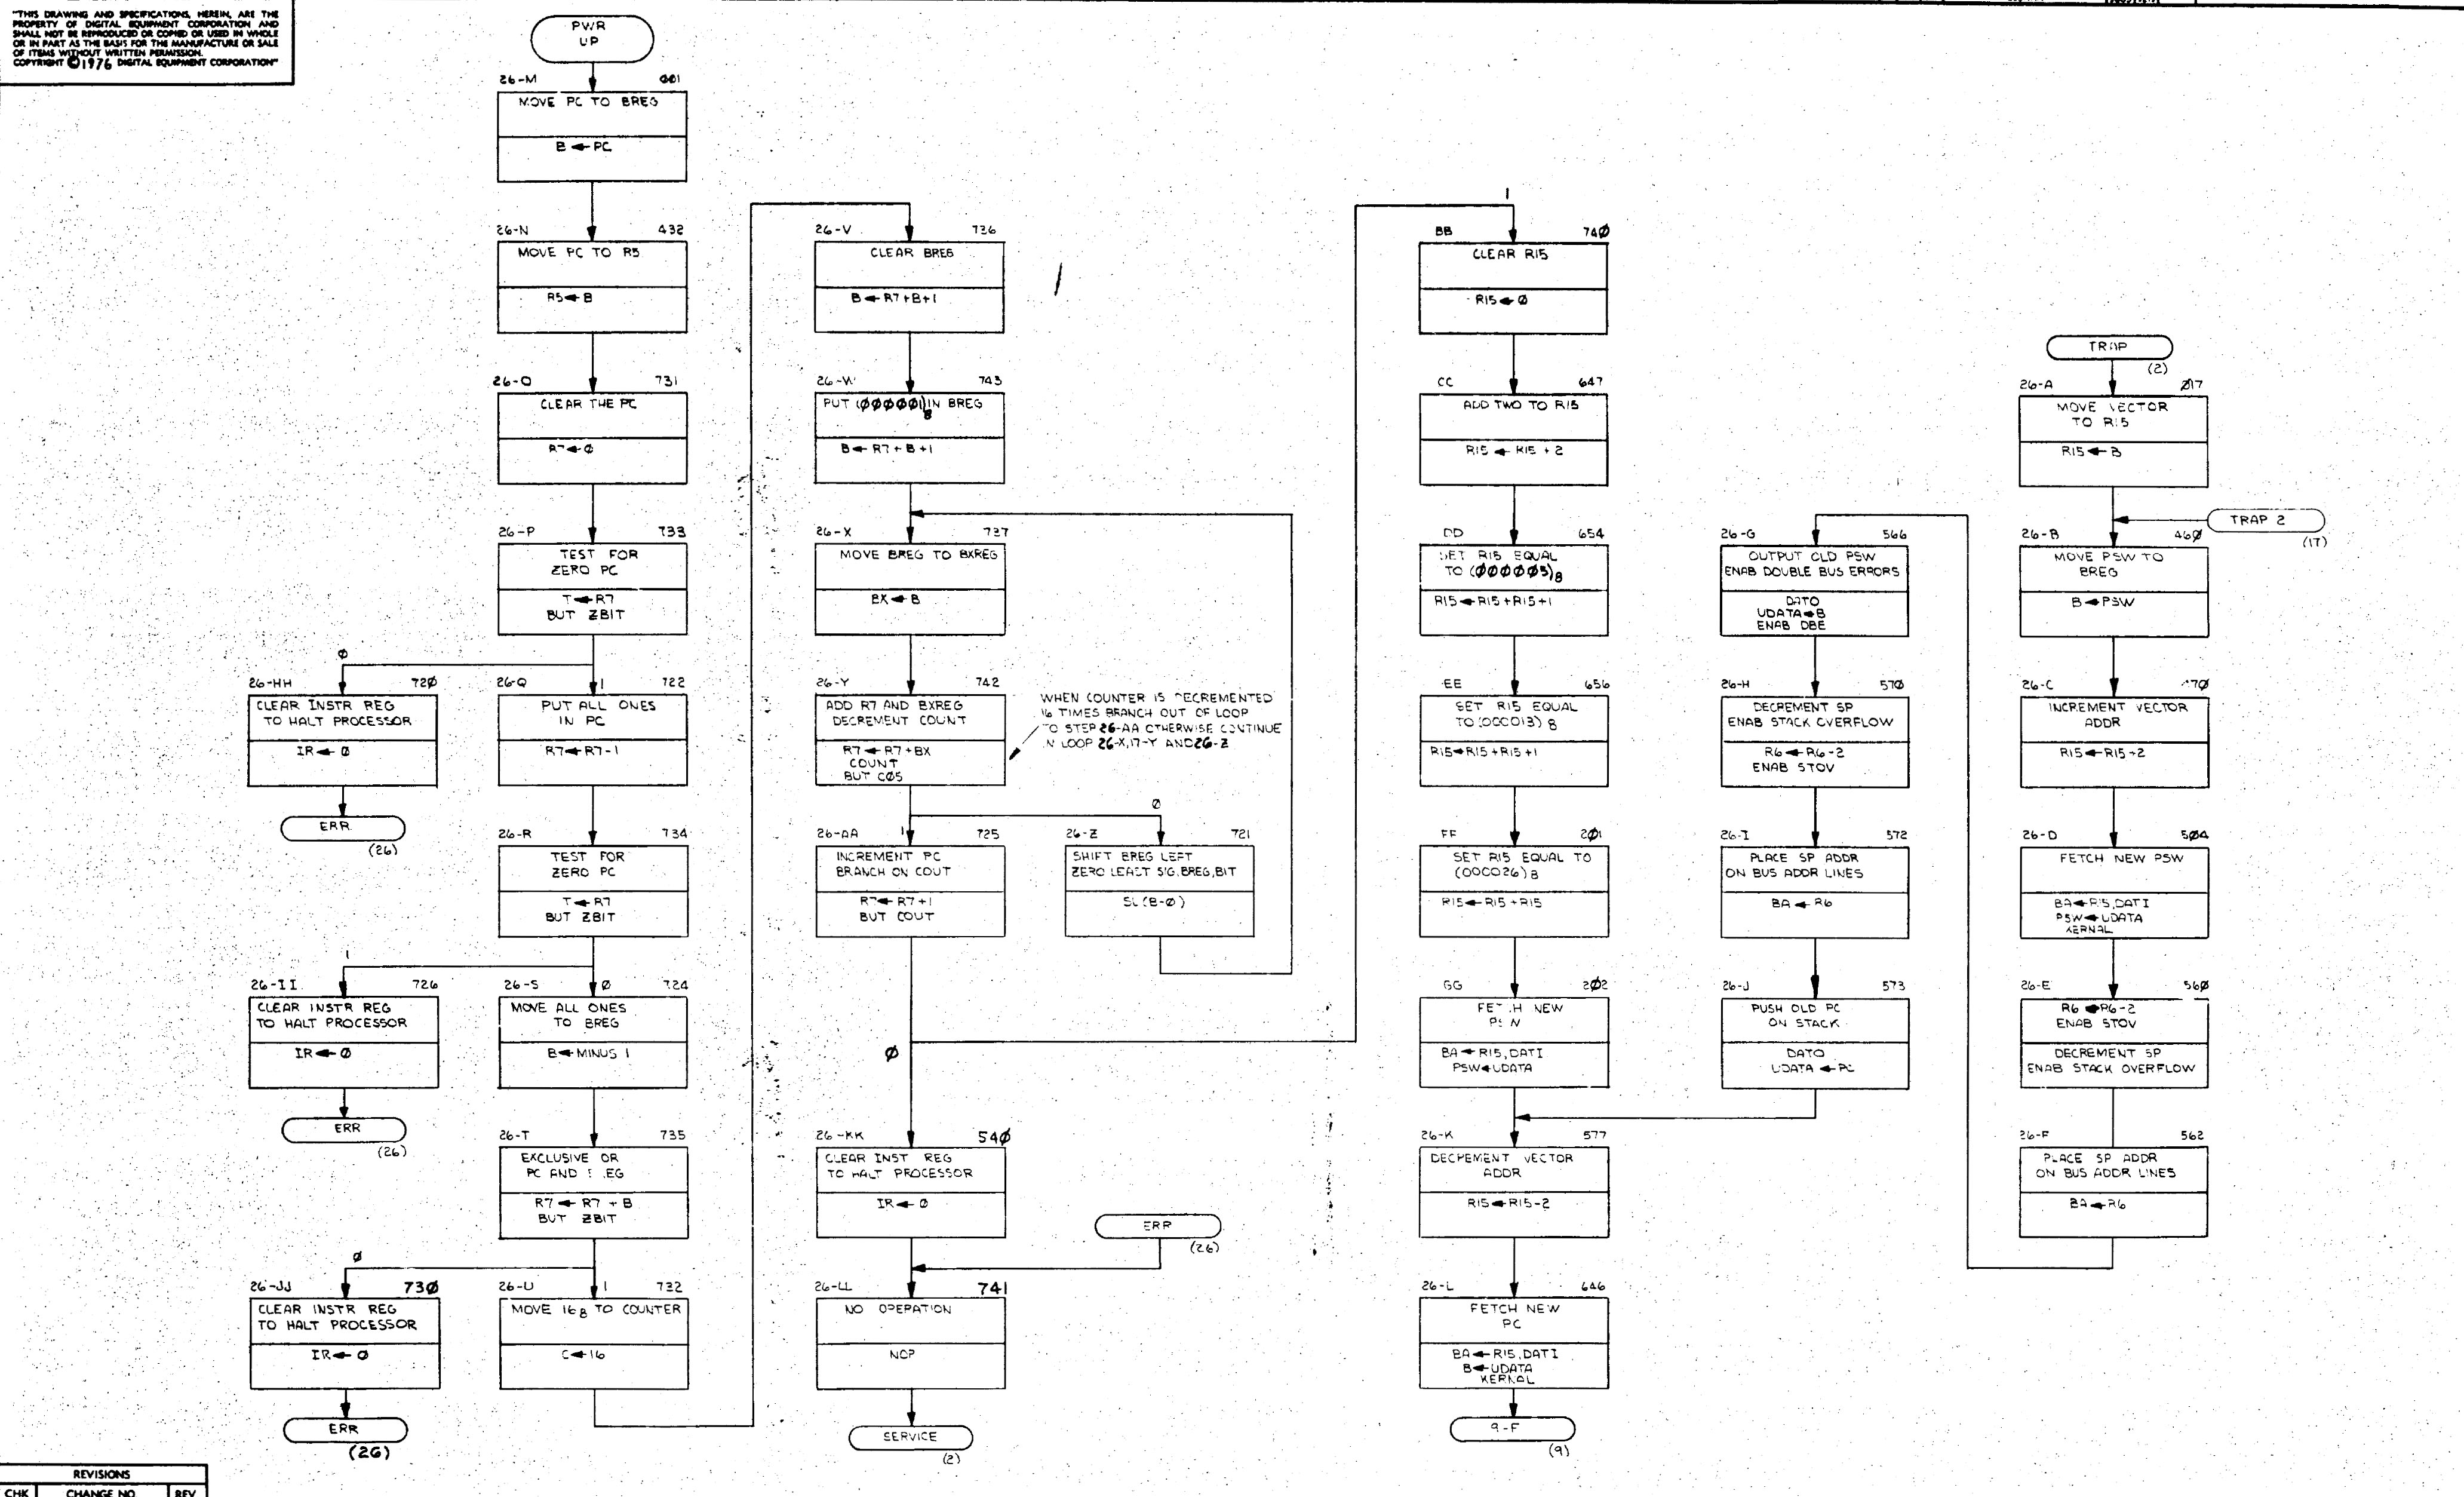 "THIS DRAWING AND SPECIFICATIONS, HEREIN, ARE THE
PROPERTY OF DIGITAL EQUIPMENT CORPORATION AND
SHALL NOT BE REPRODUCED OR COPIED OR USED IN WHOLE
OR IN PART AS THE BASIS FOR THE MANUFACTURE OR SALE
OF ITEMS WITHOUT WRITTEN PERMISSION.
COPYRIGHT ©1976 DIGITAL EQUIPMENT CORPORATION"
PWR
UP
26-M 001
MOVE PC TO BREG
B ← PC
26-N 432
MOVE PC TO R5
R5 ← B
26-O 731
CLEAR THE PC
R7 ← Ø
26-P 733
TEST FOR
ZERO PC
T ← R7
BUT ZBIT
Ø
26-HH 72Ø
CLEAR INSTR REG
TO HALT PROCESSOR
IR ← Ø
ERR
(26)
26-Q 1 722
PUT ALL ONES
IN PC
R7 ← R7-1
26-R 734
TEST FOR
ZERO PC
T ← R7
BUT ZBIT
1
26-II 726
CLEAR INSTR REG
TO HALT PROCESSOR
IR ← Ø
ERR
(26)
26-S Ø 724
MOVE ALL ONES
TO BREG
B ← MINUS 1
26-T 735
EXCLUSIVE OR
PC AND
R7 ← R7 + B
BUT ZBIT
Ø
26-JJ 73Ø
CLEAR INSTR REG
TO HALT PROCESSOR
IR ← Ø
ERR
(26)
26-U 1 732
MOVE 16 8 TO COUNTER
C ← 16
26-V 736
CLEAR BREG
B ← R7+B+1
26-W 743
PUT (ØØØØØ1)8 IN BREG
B ← R7+B+1
26-X 737
MOVE BREG TO BXREG
BX ← B
26-Y 742
ADD R7 AND BXREG
DECREMENT COUNT
R7 ← R7+BX
COUNT
BUT CØ5
WHEN COUNTER IS DECREMENTED
16 TIMES BRANCH OUT OF LOOP
TO STEP 26-AA OTHERWISE CONTINUE
IN LOOP 26-X,17-Y AND 26-Z
26-AA 1 725
INCREMENT PC
BRANCH ON COUT
R7 ← R7+1
BUT COUT
Ø
26-Z 721
SHIFT BREG LEFT
ZERO LEAST SIG.BREG,BIT
SL (B-Ø)
Ø
26-KK 54Ø
CLEAR INST REG
TO HALT PROCESSOR
IR ← Ø
ERR
(26)
26-LL 741
NO OPERATION
NOP
SERVICE
(2)
1
BB 74Ø
CLEAR R15
R15 ← Ø
CC 647
ADD TWO TO R15
R15 ← R15 + 2
DD 654
SET R15 EQUAL
TO (ØØØØØ5)8
R15 ← R15+R15+1
EE 656
SET R15 EQUAL
TO (000013) 8
R15 ← R15+R15+1
FF 2Ø1
SET R15 EQUAL TO
(000026) 8
R15 ← R15+R15
GG 2Ø2
FETCH NEW
PSW
BA ← R15,DATI
PSW ← UDATA
26-K 577
DECREMENT VECTOR
ADDR
R15 ← R15-2
26-L 646
FETCH NEW
PC
BA ← R15,DATI
B ← UDATA
KERNAL
9-F
(9)
26-G 566
OUTPUT OLD PSW
ENAB DOUBLE BUS ERRORS
DATO
UDATA ← B
ENAB DBE
26-H 57Ø
DECREMENT SP
ENAB STACK OVERFLOW
R6 ← R6-2
ENAB STOV
26-I 572
PLACE SP ADDR
ON BUS ADDR LINES
BA ← R6
26-J 573
PUSH OLD PC
ON STACK
DATO
UDATA ← PC
TRAP
(2)
26-A Ø17
MOVE VECTOR
TO R15
R15 ← B
TRAP 2
(17)
26-B 46Ø
MOVE PSW TO
BREG
B ← PSW
26-C
INCREMENT VECTOR
ADDR
R15 ← R15+2
26-D 5Ø4
FETCH NEW PSW
BA ← R15,DATI
PSW ← UDATA
KERNAL
26-E 56Ø
R6 ← R6-2
ENAB STOV
DECREMENT SP
ENAB STACK OVERFLOW
26-F 562
PLACE SP ADDR
ON BUS ADDR LINES
BA ← R6
REVISIONS
CHK CHANGE NO. REV